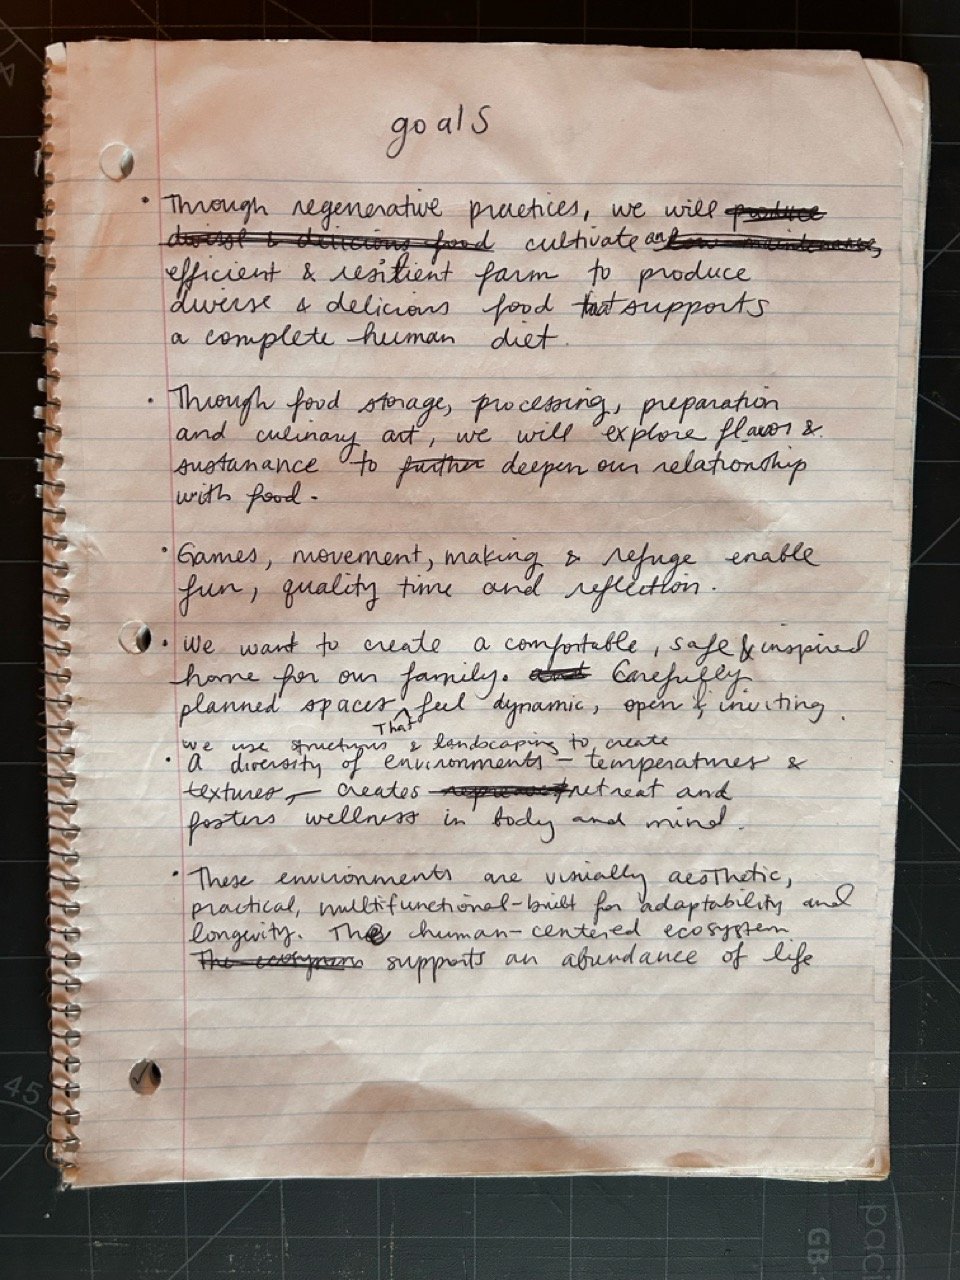 goals
• Through regenerative practices, we will produce
diverse & delicious food cultivate an low maintenance,
efficient & resilient farm to produce
diverse & delicious food that supports
a complete human diet.
• Through food storage, processing, preparation
and culinary art, we will explore flavor &
sustanance to further deepen our relationship
with food.
• Games, movement, making & refuge enable
fun, quality time and reflection.
• We want to create a comfortable, safe & inspired
home for our family. and Carefully
planned spaces feel dynamic, open & inviting.
That
we use structures & landscaping to create
• A diversity of environments – temperatures &
textures, – creates retreat and
fosters wellness in body and mind.
• These environments are visually aesthetic,
practical, multifunctional-built for adaptability and
longevity. The human-centered ecosystem
The ecosystem supports an abundance of life
45
GB-
pac